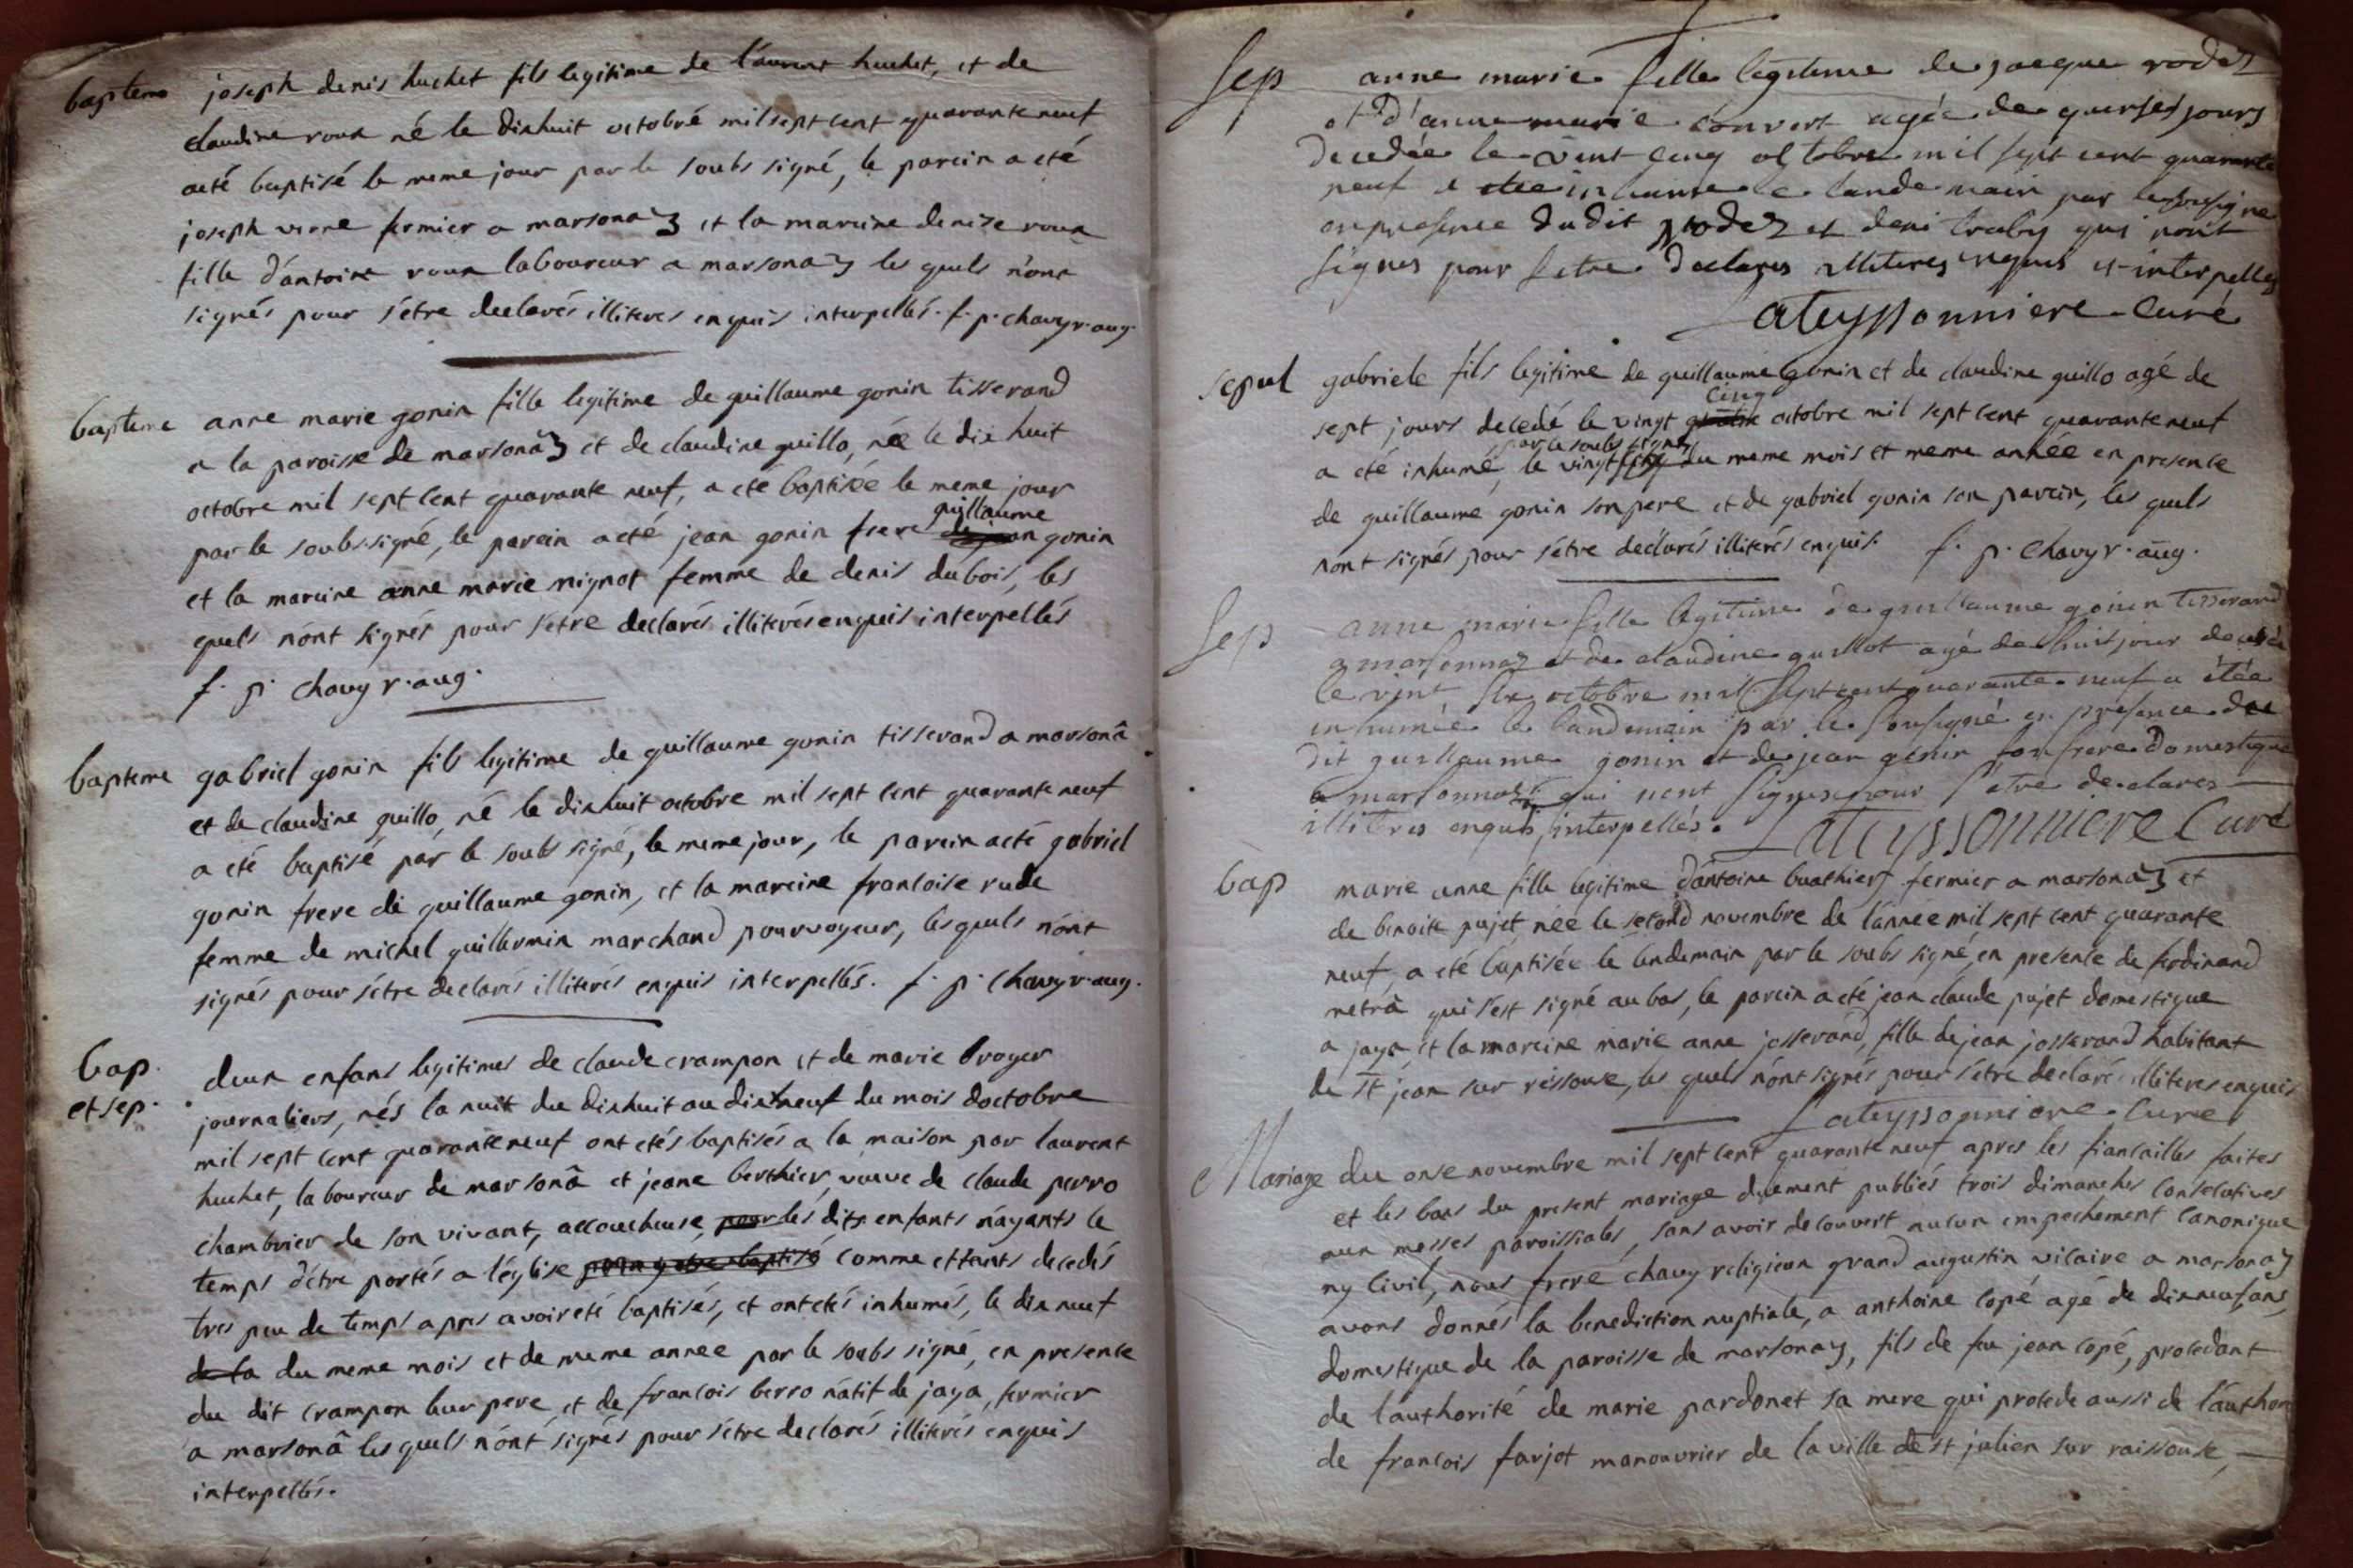 bapteme joseph denis huchet fils legitime de laurent huchet, et de
claudine roux né le dixhuit octobre mil sept cent quarante neuf
aeté baptisé le meme jour par le soubs signé, le parein a eté
joseph vienne fermier a marsonaz et la mareine denise roux
fille d'antoine roux laboureur a marsonaz les quels n'ont
signés pour s'étre declarés illiterés enquis interpellés. f. p. chavy r. aug.
bapteme anne marie gonin fille legitime de guillaume gonin tisserand
a la paroisse de marsonaz et de claudine guillo, née le dix huit
octobre mil sept cent quarante neuf, a eté baptisée le meme jour
par le soubs signé, le parein a eté jean gonin frere de jean guillaume gonin
et la mareine anne marie mignot femme de denis dubois, les
quels n'ont signés pour s'étre declarés illiterés enquis interpellés
f. p. chavy r. aug.
bapteme gabriel gonin fils legitime de guillaume gonin tisserand a marsonâ
et de claudine guillo, né le dixhuit octobre mil sept cent quarante neuf
a eté baptisé par le soubs signé, le meme jour, le parein a eté gabriel
gonin frere de guillaume gonin, et la mareine francoise rude
femme de michel guillermin marchand pourvoyeur, les quels n'ont
signés pour s'étre declarés illiterés enquis interpellés. f. p. chavy r. aug.
bap. deux enfans legitimes de claude crampon et de marie broyer
et sep. journaliers, nés la nuit du dixhuit au dixneuf du mois doctobre
mil sept cent quarante neuf ont etés baptisés a la maison par laurent
huchet, laboureur de marsonâ et jeane berthier, vueve de claude perro
chambrier de son vivant, accoucheuse, pour les dits enfants n'ayants le
temps d'étre portés a l'église pour y etre baptisé comme ettants decedés
tres peu de temps apres avoir eté baptisés, et ont etés inhumés, le dix neuf
de la du meme mois et de meme année par le soubs signé, en presente
du dit crampon leur pere, et de francois berro natif de jaya, fermier
a marsonâ les quels n'ont signés pour s'étre declarés illiterés enquis
interpellés.
Sep anne marie fille legitime de jacque rodez
et d'anne marie convert agée de quinse jours
decedée le vint cinq octobre mil sept cent quarante
neuf a etée inhumee le lande main par le sousigne
en presence du dit rodez et deni traby qui nont
signes pour setre declares illiteres enquis et interpelles
Lateyssonniere Curé
sepul gabriele fils legitime de guillaume gonin et de claudine guillo agé de
sept jours decedé le vingt quatre cinq octobre mil sept cent quarante neuf
a eté inhumé, par le soubs signé, le vingt six du meme mois et meme année en presente
de guillaume gonin son pere et de gabriel gonin son parein, les quels
n'ont signés pour s'étre declarés illiterés enquis. f. p. chavy r. aug.
Sep anne marie fille legitime de guillaume gonin tisserand
a marsonnaz et de claudine guillot agé de huit jour decedée
le vint six octobre mil sept cent quarante neuf a étée
inhumée le landemain par le sousigné en presence du
dit guillaume gonin et de jean gonin son frere domestique
a marsonnaz qui nont signes pour s'etre declares
illiteres enquis, interpellés. Lateyssonniere Curé
bap marie anne fille legitime d'antoine buathier fermier a marsonaz et
de benoite pujet née le second novembre de l'année mil sept cent quarante
neuf, a eté baptisée le lendemain par le soubs signé, en presente de ferdinand
metrà qui s'est signé au bas, le parein a eté jean claude pujet domestique
a jaya, et la mareine marie anne josserand, fille de jean josserand habitant
de st jean sur ressouse, les quels n'ont signés pour s'étre declaré illiteres enquis
Lateyssonniere Curé
Mariage du onse novembre mil sept cent quarante neuf apres les fiancailles faites
et les bans du present mariage duement publiés trois dimanches consecutives
aux messes paroissiales, sans avoir decouvert aulun empechement canonique
ny civil, nous frere chavy religieux grand augustin vicaire a marsonaz
avons donnés la benediction nuptiale, a anthoine copé agé de dixneuf ans
domestique de la paroisse de marsonaz, fils de feu jean copé, procedant
de l'authorité de marie pardonet sa mere qui procede aussi de l'author
de francois farjot manouvrier de la ville de st julien sur raissouse,